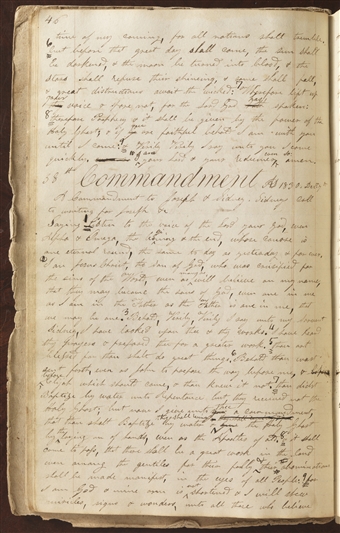 46
time of my coming, for all nations shall tremble
but before that great day shall come, the sun shall
be darkened, & the moon be turned into blood, & the
stars shall refuse their shining, & some shall fall,
& great distructions await the wicked: Wherefore lift up
voice & spare not, for the Lord God hath spoken:
Therefore Prophecy & it shall be given by the power of the
Holy Ghost & if ye are faithful behold I am with you
until I come & Verily Verily I say unto you I come
quickly I am your Lord & your redeemer amen.
58th Commandment AD 1830. Decr 7th
A Commandment to Joseph & Sidney. Sidney call
to writing for Joseph &c
Saying Listen to the voice of the Lord your God, even
Alpha & Omega the begining & the end, whose course is
one eternal round, the same to day as yesterday & forever,
I am Jesus Christ, the Son of God, who was crucified for
the sins of the World, even as will believe on my name,
that they may become the sons of God, even one in me
as I am in the Father as the Father is one in me, that
we may be one. Behold, Verily, Verily I say unto my servant
Sidney, I have looked upon thee & thy works. I have heard
thy prayers & prepared thee for a greater work. thou art
blessed for thou shalt do great things. Behold thou wast
sent forth, even as John to prepare the way before me, & before
Elijah which should come, & thou knew it not. thou didst
Baptise by water unto Repentance but they received not the
Holy Ghost, but now I give unto thee a commandment,
that thou shalt Baptise by water & they shall receive the Holy Ghost
by the laying on of hands, even as the Apostles of old. & it shall
come to pass, that there shall be a great work in the land
even among the gentiles for their folly & their abominations
shall be made manifest, in the eyes of all People: for
I am God & mine arm is not shortened & I will shew
miracles, signs & wonders, unto all those who believe